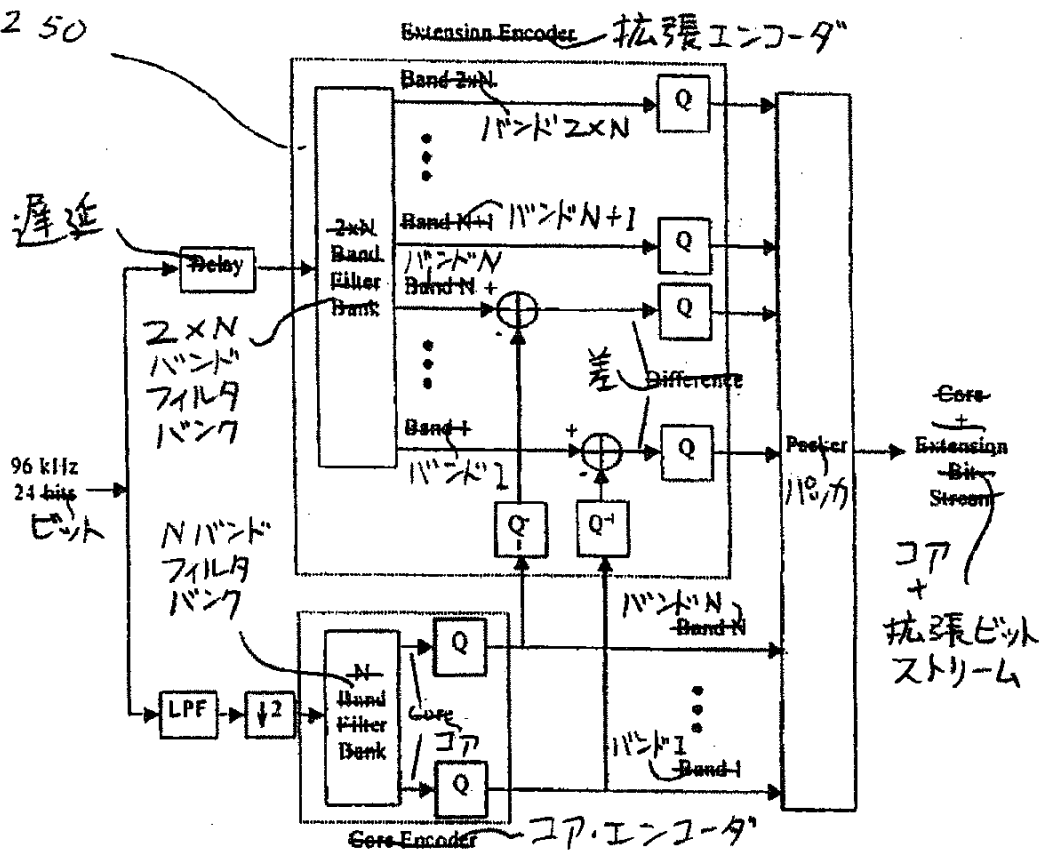 250
Extension Encoder
拡張エンコーダ
Band 2xN
バンド2×N
Q
Band N+1
バンドN+1
Q
遅延
Delay
2xN
Band
Filter
Bank
バンドN
Band N
+
-
Q
2×N
バンド
フィルタ
バンク
差
Difference
Band 1
バンド1
+
-
Q
Packer
パッカ
Core
+
Extension
Bit
Stream
コア
+
拡張ビット
ストリーム
96 kHz
24 bits
ビット
Q⁻¹
Q⁻¹
Nバンド
フィルタ
バンク
バンドN
Band N
Q
N
Band
Filter
Bank
LPF
↓2
Core
コア
Q
バンド1
Band 1
Core Encoder
コア・エンコーダ